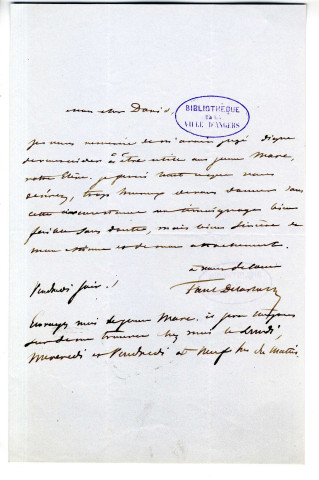 mon cher David,
BIBLIOTHÈQUE
DE LA
VILLE D'ANGERS
je vous remercie de m'avoir jugé digne
de vous aider à être utile au jeune Marc,
votre élève. je ferai tout ce que vous
désirez, trop heureux de vous donner dans
cette circonstance un témoignage bien
faible sans doute, mais bien sincère de
mon estime et de mon attachement.
à vous de cœur
Paul Delaroche
Vendredi soir.
Envoyez moi le jeune Marc. il sera toujours
sûr de me trouver chez moi le lundi,
Mercredi et Vendredi à neuf hes du matin.